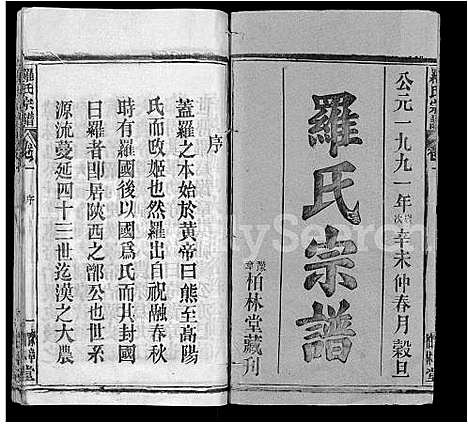 羅氏宗譜
卷一
公元一九九一年歲次辛未仲春月穀旦
羅氏宗譜
豫章柏林堂藏刊
序
蓋羅之本始於黃帝曰熊至高陽
氏而改姬也然羅出自祝融春秋
時有羅國後以國爲氏而其封國
曰羅者卽居陝西之鄫公也世系
源流蔓延四十三世迄漢之大農
羅氏宗譜
卷一
序
一
豫章堂